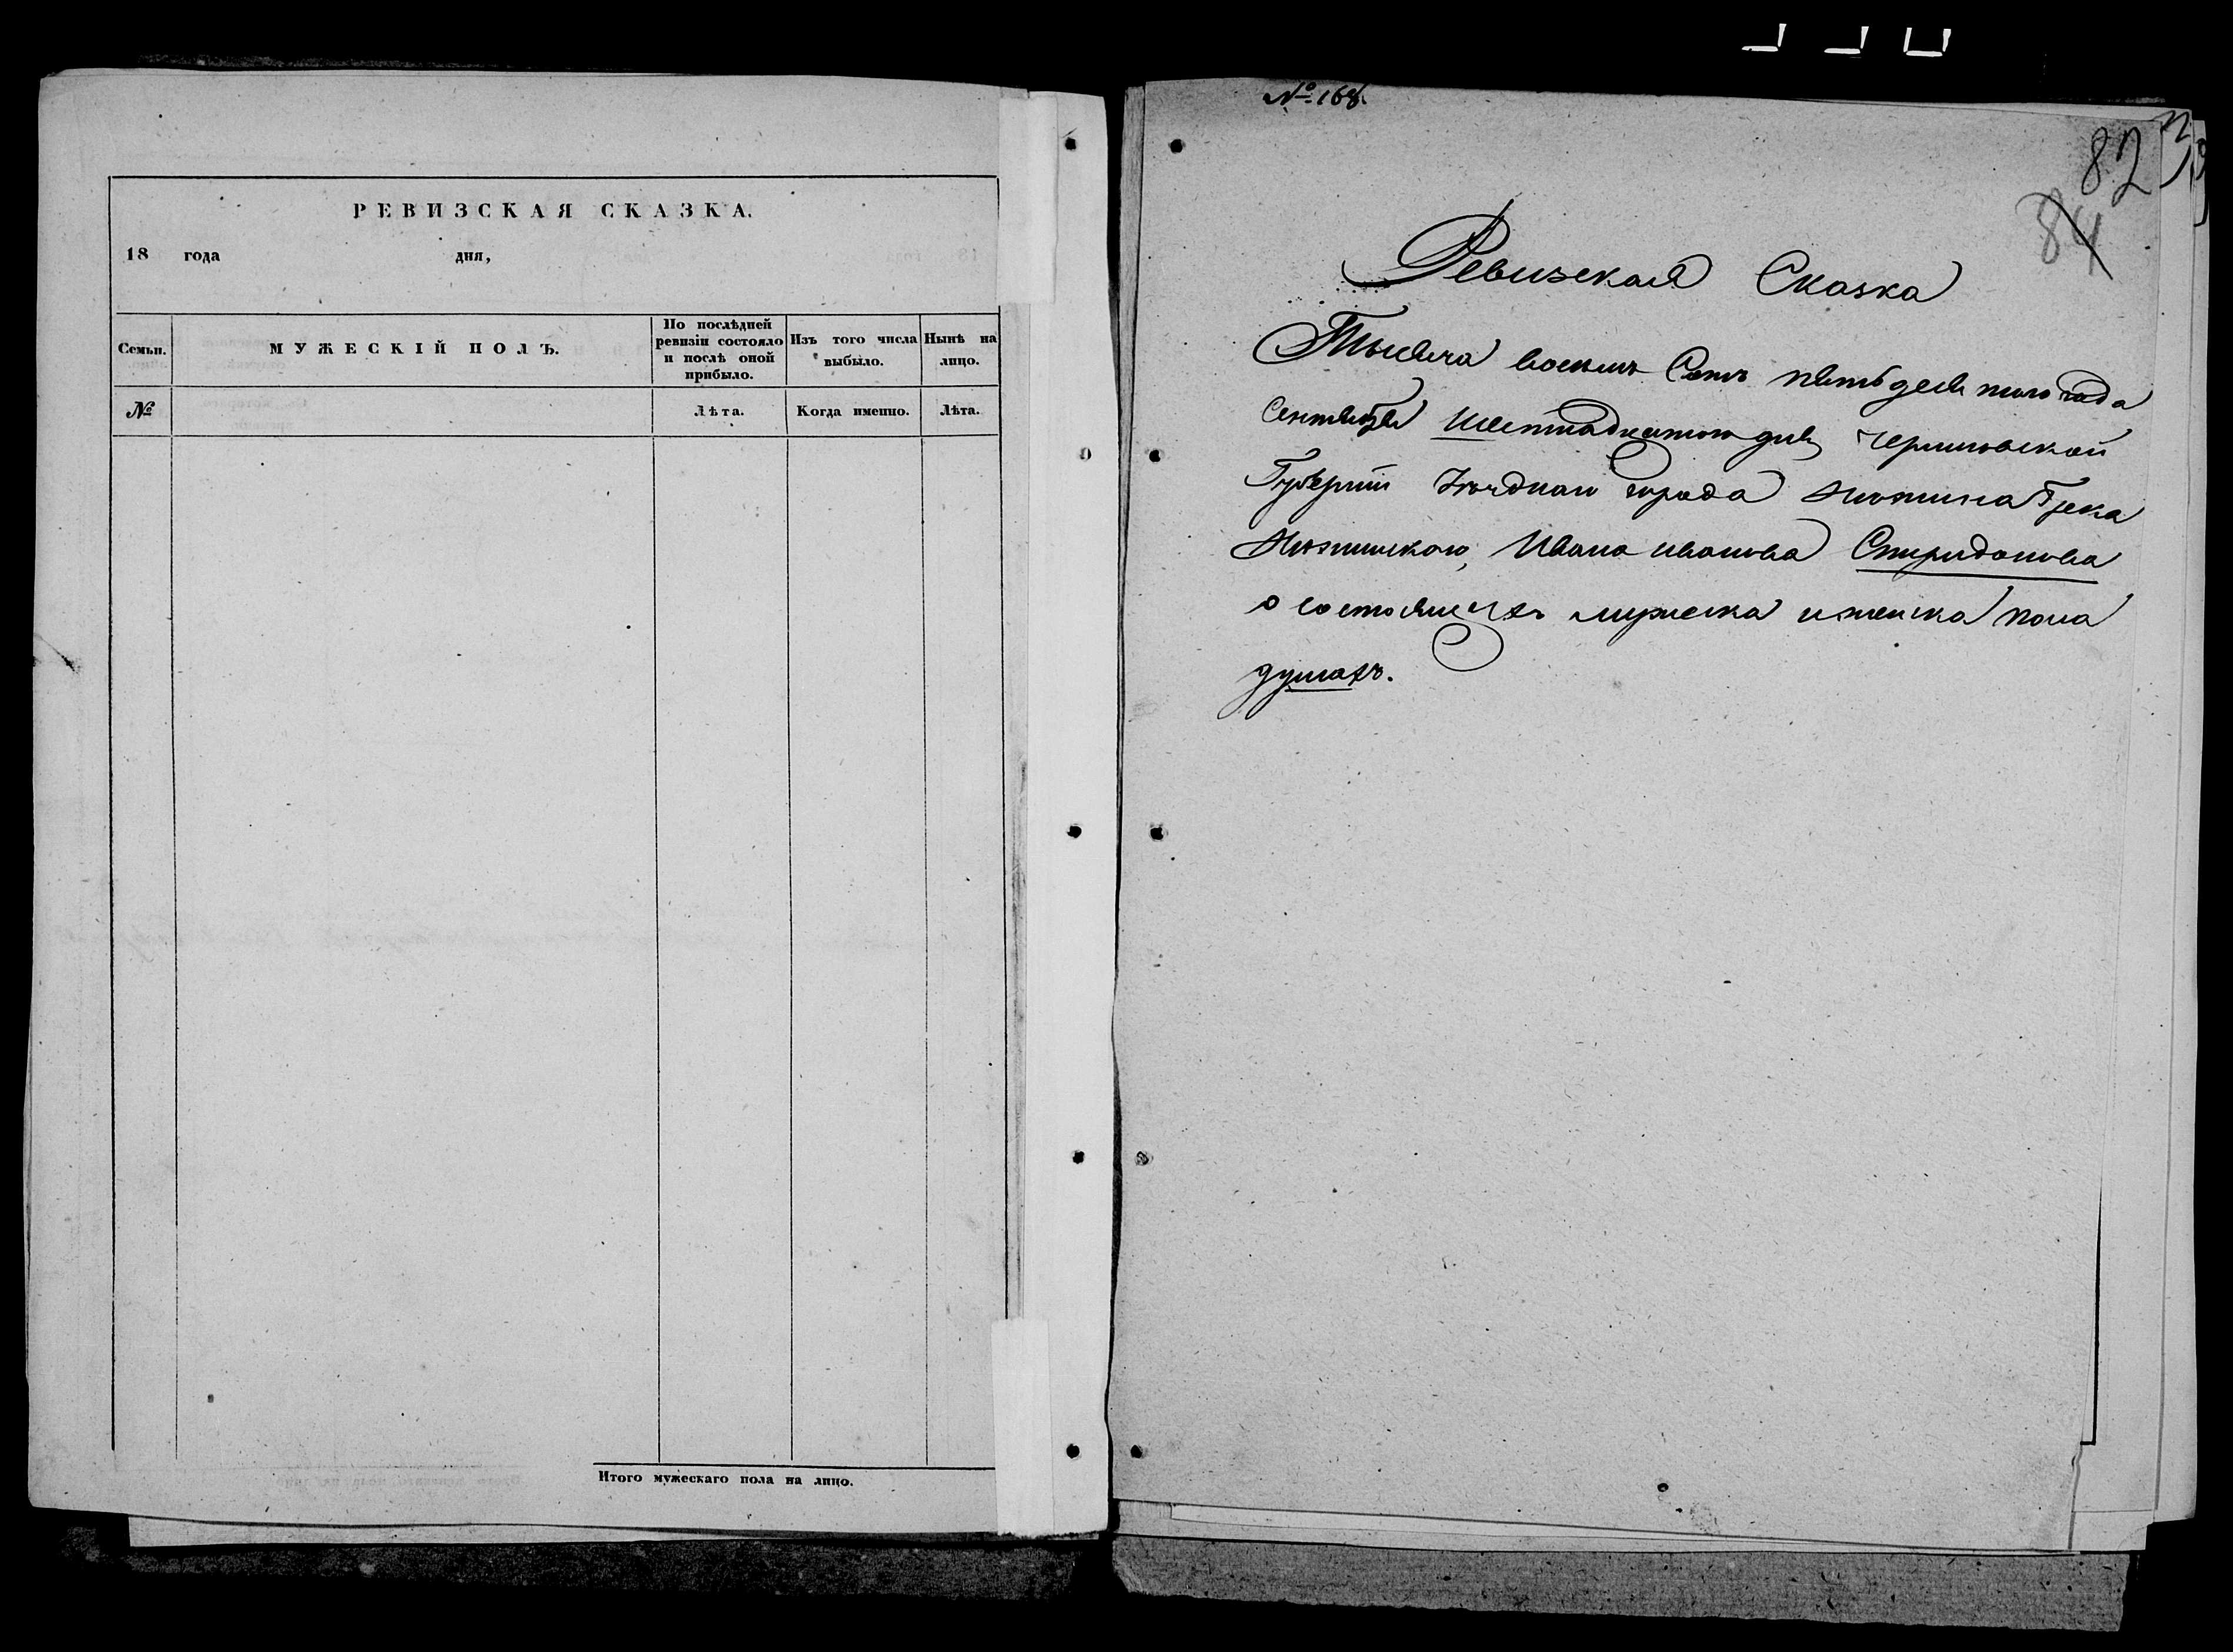 РЕВИЗСКАЯ СКАЗКА.
18 года дня,
Семьи.
МУЖЕСКІЙ ПОЛЪ.
По послѣдней
ревизіи состояло
и послѣ оной
прибыло.
Изъ того числа
выбыло.
Нынѣ на
лицо.
№
Лѣта.
Когда именно.
Лѣта.
Итого мужескаго пола на лицо.
№ 168.
82
84
Ревизская Сказка
Тысяча восемь Сотъ пятьдесятого года
Сентября Шестнадцатого дня Черниговской
Губерніи города Нежина Грека
Нежинского, Ивана Иванова Спиридонова
о состоящихъ мужеска и женска пола
душахъ.